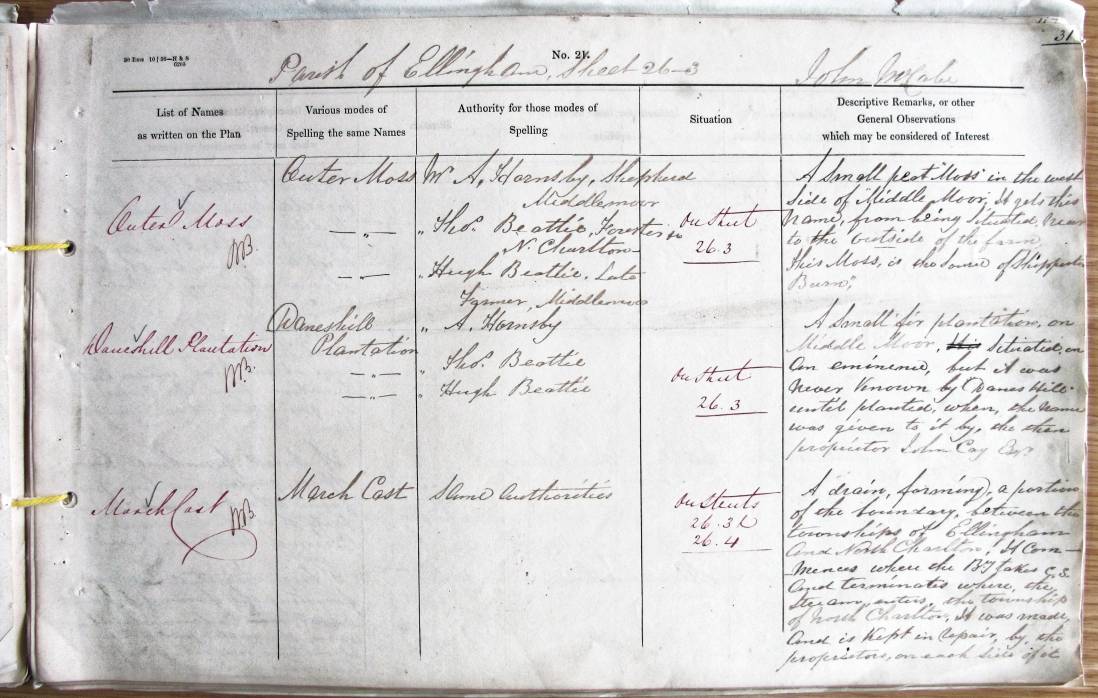 31
No. 24.
Parish of Ellingham, Sheet 26-3 John McCabe
List of Names
as written on the Plan
Various modes of
Spelling the same Names
Authority for those modes of
Spelling
Situation
Descriptive Remarks, or other
General Observations
which may be considered of Interest
Outer Moss
Outer Moss
Mr A. Hornsby, Shepherd
Middlemoor
" Thos. Beattie, Forester
N. Charlton
" Hugh Beattie, Late
Farmer Middlemoor
On Sheet
26.3
A small peat Moss in the west
side of Middle Moor, It gets this
Name, from being Situated, near
to the outside of the farm,
this Moss, is the Source of Shipperton
Burn,
Daneshill Plantation
Daneshill
Plantation
" A. Hornsby
" Thos. Beattie
" Hugh Beattie
On Sheet
26.3
A Small fir plantation, on
Middle Moor, Situated, on
an eminence, but it was
never Known by Danes Hill
until planted, when, the Name
was given to it by, the then
proprietor John Cay Esqr
March Cast
March Cast
Same Authorities
On Sheets
26.3 &
26.4
A drain, forming, a portion
of the boundary, between the
townships of Ellingham
and North Charlton, It Com-
mences where the By takes C.S.
and terminates where, the
Stream, enters, the township
of North Charlton, It was made,
and is Kept in repair, by, the
proprietors, on each side of it